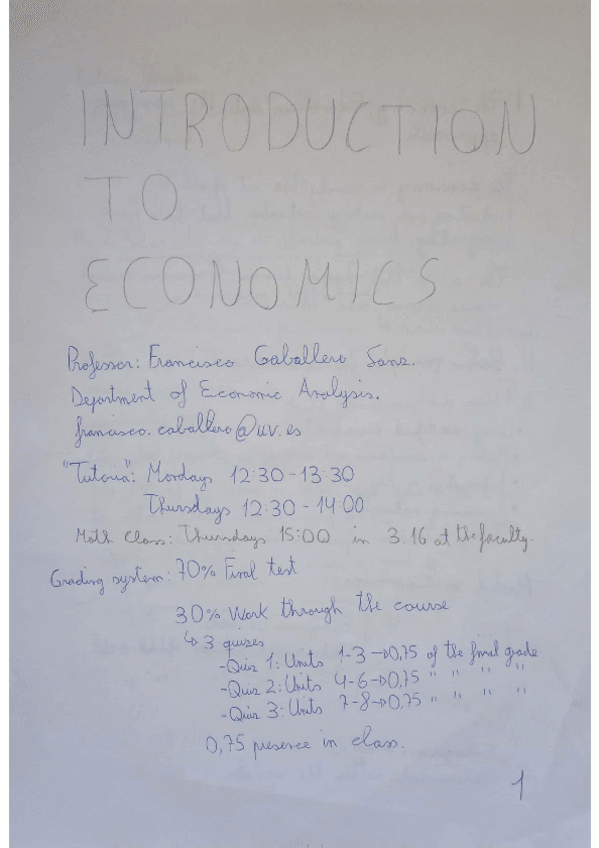 INTRODUCTION
TO
ECONOMICS
Professor: Francisco Caballero Sanz.
Department of Economic Analysis.
francisco.caballero@uv.es
"Tutoria": Mondays 12:30-13:30
Thursdays 12:30-14:00
Math Class: Thursdays 15:00 in 3.16 at the faculty.
Grading system: 70% Final test
30% Work through the course
↳ 3 quizes
-Quiz 1: Units 1-3→0,75 of the final grade
-Quiz 2: Units 4-6→0,75 " " " "
-Quiz 3: Units 7-8→0,75 " " " "
0,75 presence in class.
1